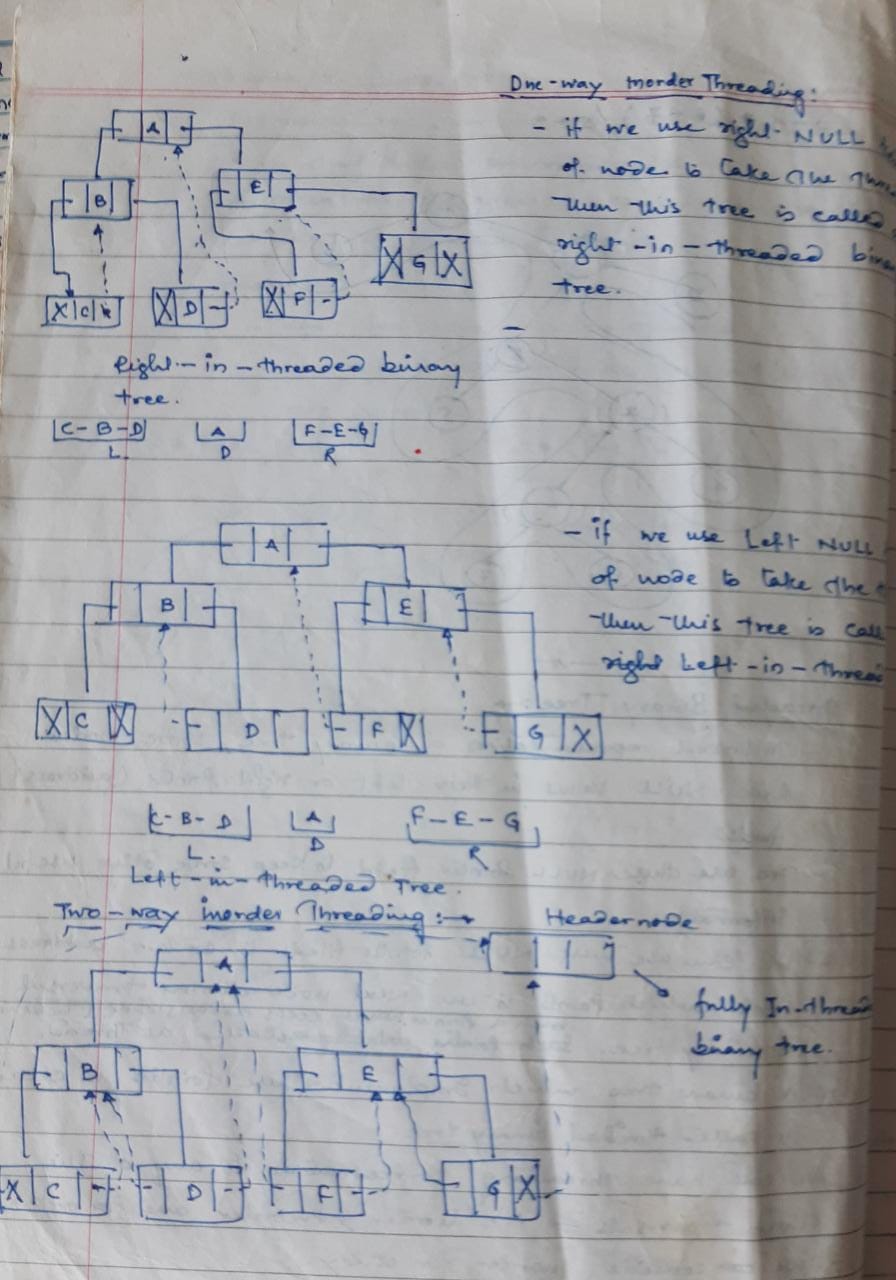 One-way Inorder Threading:
- if we use right NULL
of node to take the
then this tree is called
right-in-threaded
tree.
A
B
E
X G X
X C
X D
X F
Right-in-threaded binary
tree.
C-B-D A F-E-G
L D R
- if we use Left NULL
of node to take the
then this tree is
right Left-in-
A
B
E
X C X
D
F X
G X
C-B-D A F-E-G
L D R
Left-in-threaded Tree.
Two-way inorder Threading:→ Headernode
fully In-
binary tree.
A
B
E
X C
D
F
G X